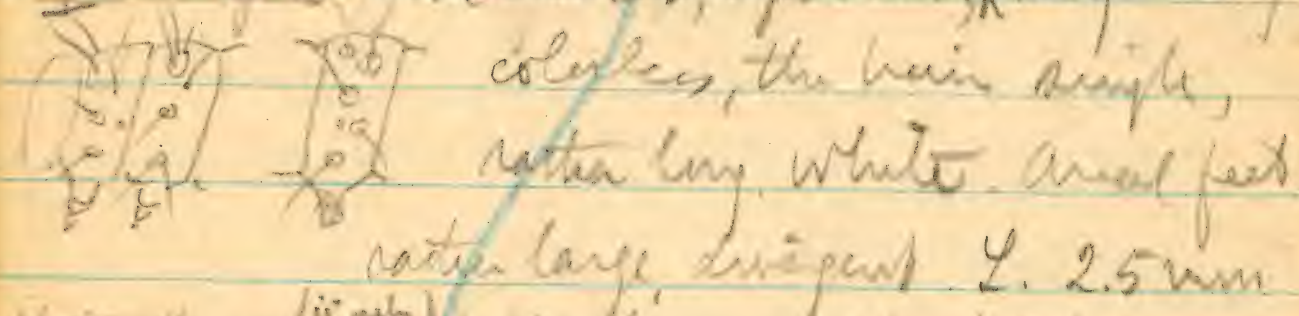 colorless, the hairs single,
rather long, white. Anal feet
rather large, divergent. L. 2.5 mm